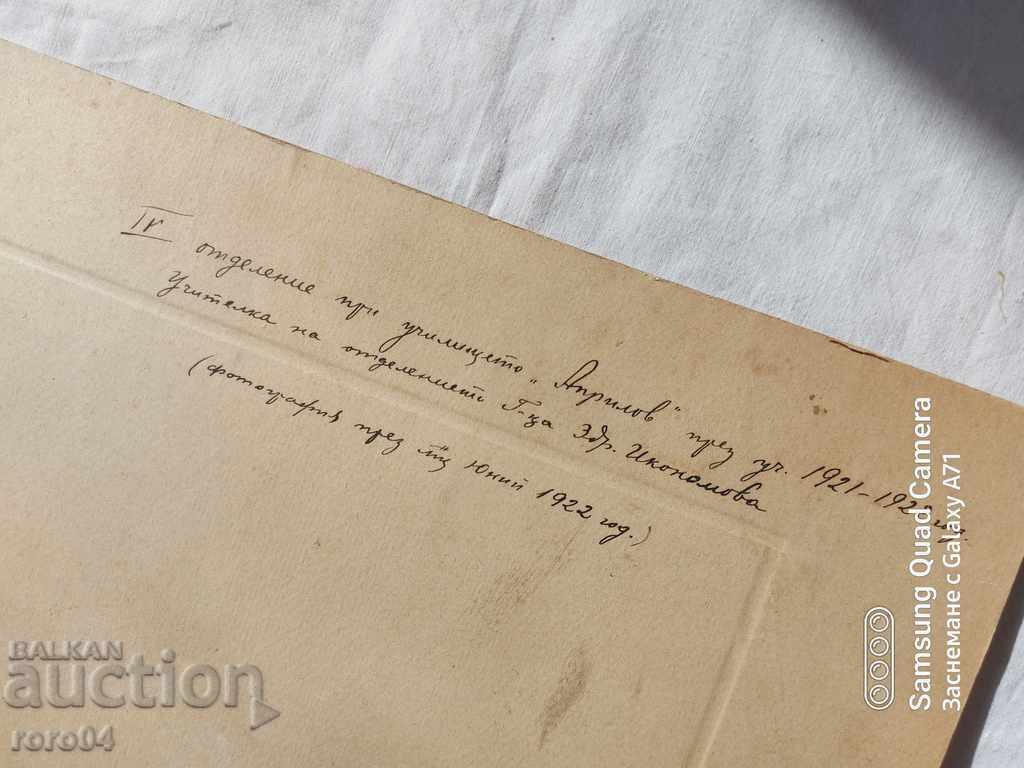 IV отделение при училището „Априлов" през уч. 1921–1922 год.
Учителка на отделението Г-ца Здр. Икономова
(фотография през м-ц Юний 1922 год.)
BALKAN
auction
roro04
Samsung Quad Camera
Заснемане с Galaxy A71